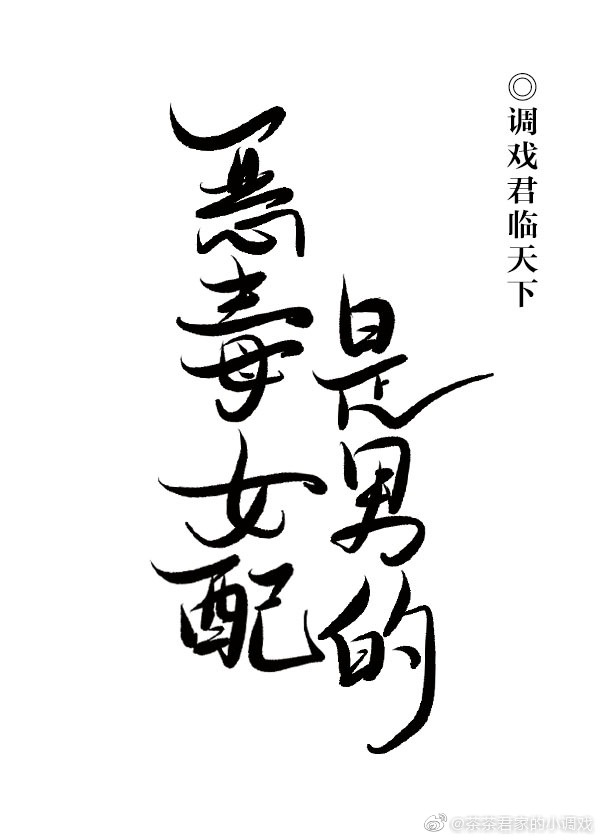 恶毒女配
是男的
◎调戏君临天下
@茶茶君家的小调戏